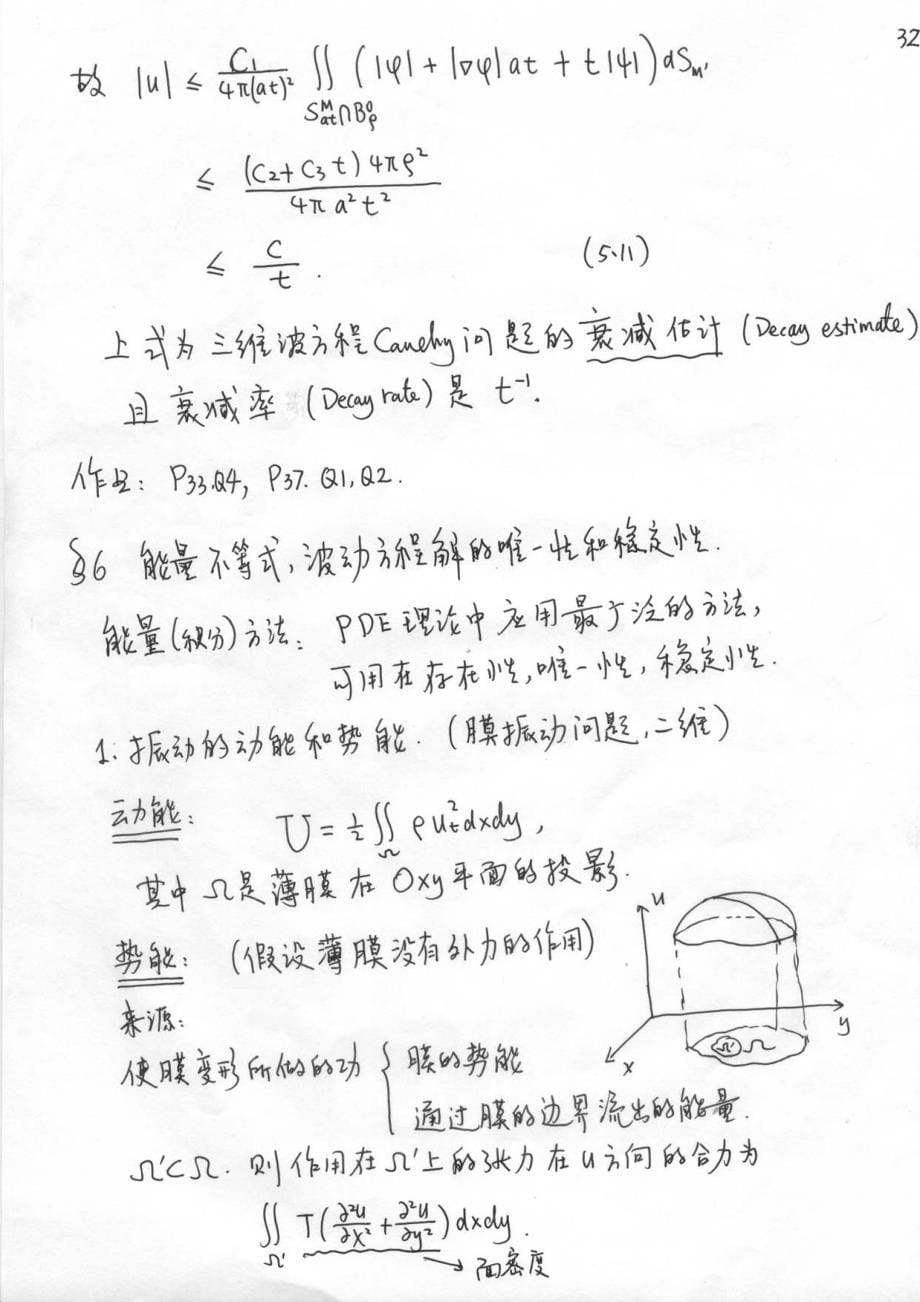 32
故 |u| ≤ C₁/(4π(at)²) ∬_{S^M_{at}∩B^0_ρ} (|φ| + |∇φ| at + t|ψ|) dS_{M'}
≤ (C₂ + C₃ t) 4πρ² / (4π a² t²)
≤ C/t . (5.11)
上式为三维波方程Cauchy问题的衰减估计 (Decay estimate)
且衰减率 (Decay rate) 是 t⁻¹.
作业: P33.Q4, P37. Q1, Q2.
§6 能量不等式, 波动方程解的唯一性和稳定性.
能量(积分)方法: PDE理论中应用最广泛的方法,
可用在存在性, 唯一性, 稳定性.
1. 振动的动能和势能. (膜振动问题, 二维)
动能: U = ½ ∬_Ω ρ u_t² dxdy ,
其中 Ω是薄膜在 Oxy平面的投影.
势能: (假设薄膜没有外力的作用)
u
y
x
Ω' Ω
来源:
使膜变形所做的功 { 膜的势能
通过膜的边界流出的能量.
Ω'⊂Ω. 则作用在Ω'上的张力在u方向的合力为
∬_{Ω'} T(∂²u/∂x² + ∂²u/∂y²) dxdy .
→ 面密度